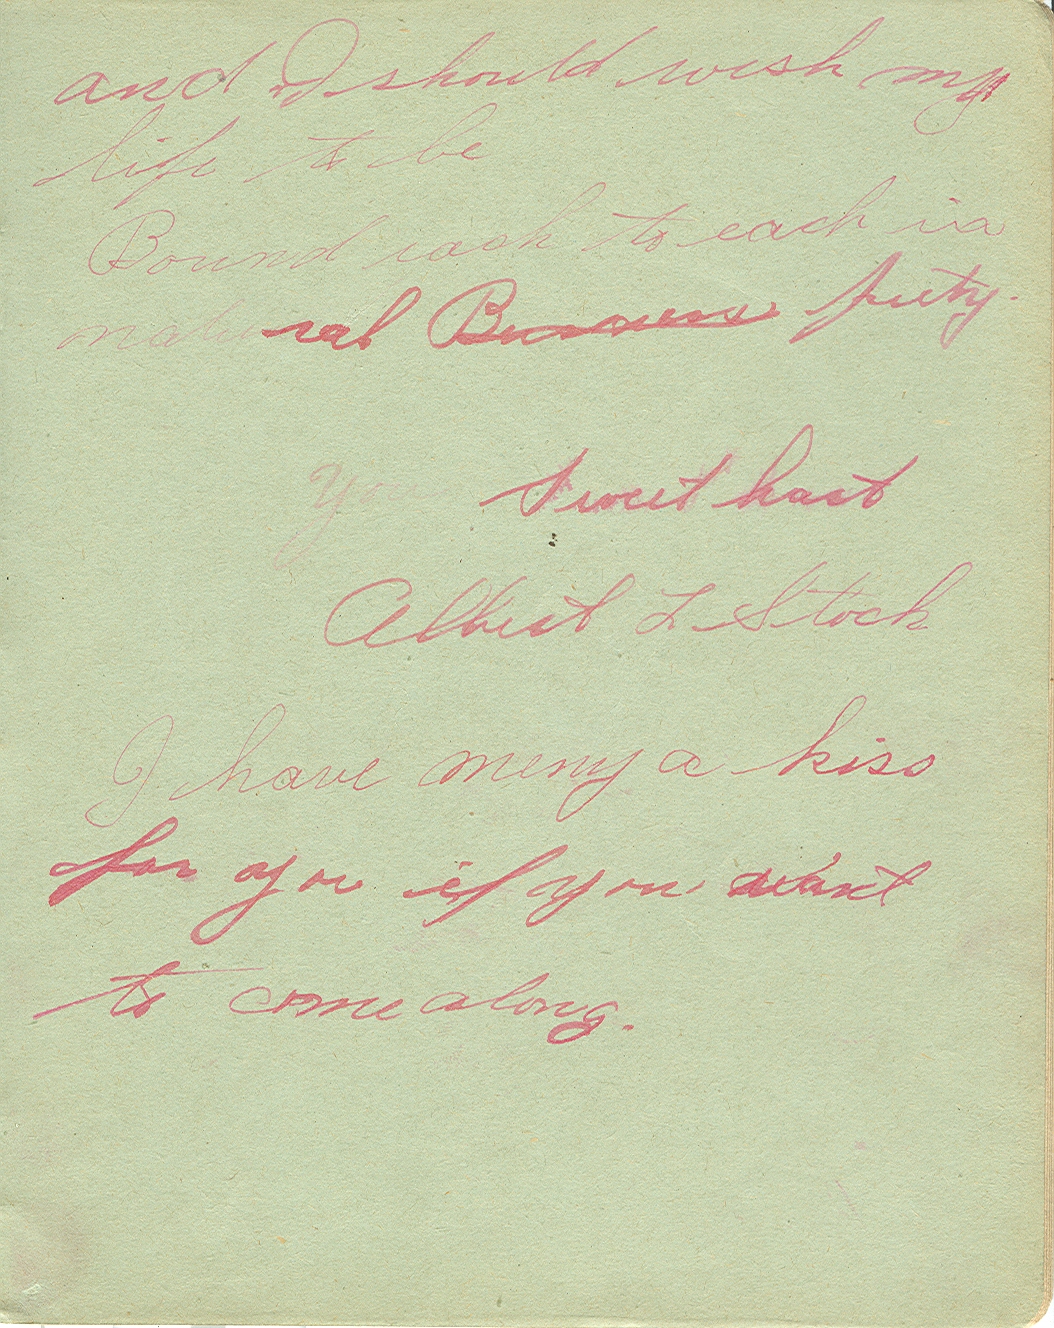 and I should wish my
life to be
Bound each to each in a
natural piety.
Your Sweet hart
Albert L Stock
I have meny a kiss
for you if you want
to come along.